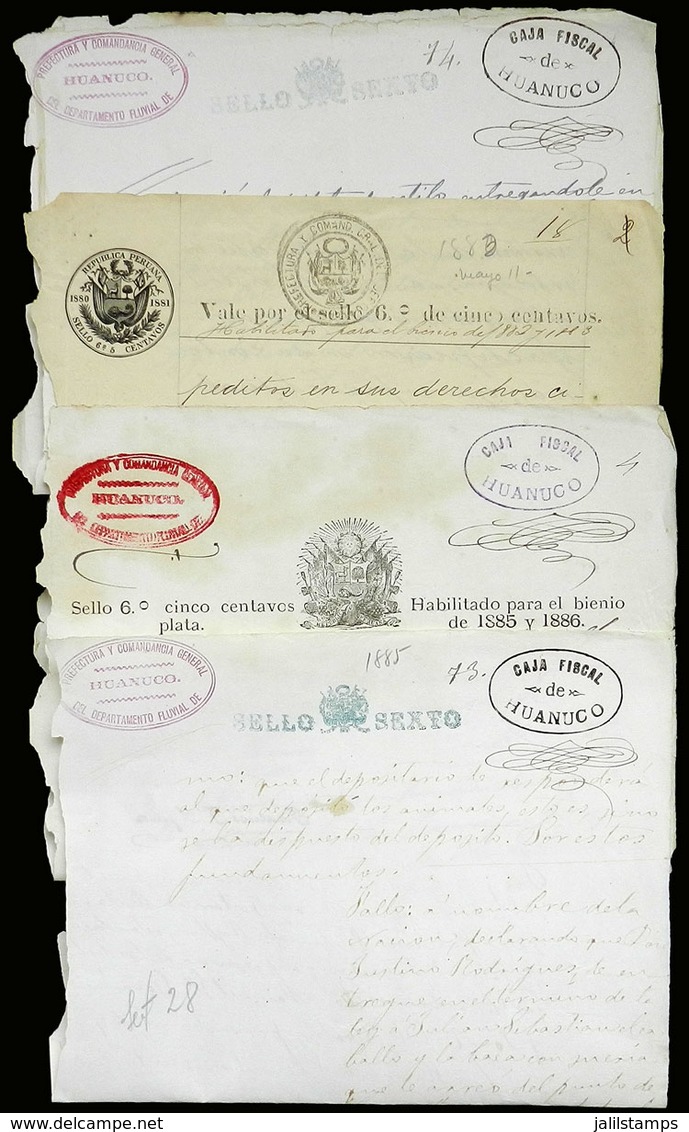 PREFECTURA Y COMANDANCIA GENERAL
HUANUCO.
DEL DEPARTAMENTO FLUVIAL DE
SELLO SEXTO
74.
CAJA FISCAL
de
HUANUCO
entregandole en
REPUBLICA PERUANA
1880 1881
SELLO 6º 5 CENTAVOS
PREFECTURA Y COMAND. GRAL.
1883
mayo 11-
18
2
Vale por el sello 6.º de cinco centavos.
Habilitado para el bienio de 1882 y 1883
peditos en sus derechos ci-
PREFECTURA Y COMANDANCIA GENERAL
HUANUCO.
DEL DEPARTAMENTO FLUVIAL DE
CAJA FISCAL
de
HUANUCO
4
Sello 6.º cinco centavos
plata.
Habilitado para el bienio
de 1885 y 1886.
PREFECTURA Y COMANDANCIA GENERAL
HUANUCO.
DEL DEPARTAMENTO FLUVIAL DE
1885
SELLO SEXTO
73.
CAJA FISCAL
de
HUANUCO
que el depositario de responderá
al que depositó los animales, esto es sino
se ha dispuesto del deposito. Por estos
fundamentos.
Fallo: á nombre de la
Nacion, declarando que Don
Justino Rodriguez, de en
tregue, en el termino de la
ley á Julian Sebastian el ca
ballo y la
que le
del punto de
Set 28
www.delcampe.net
jalilstamps